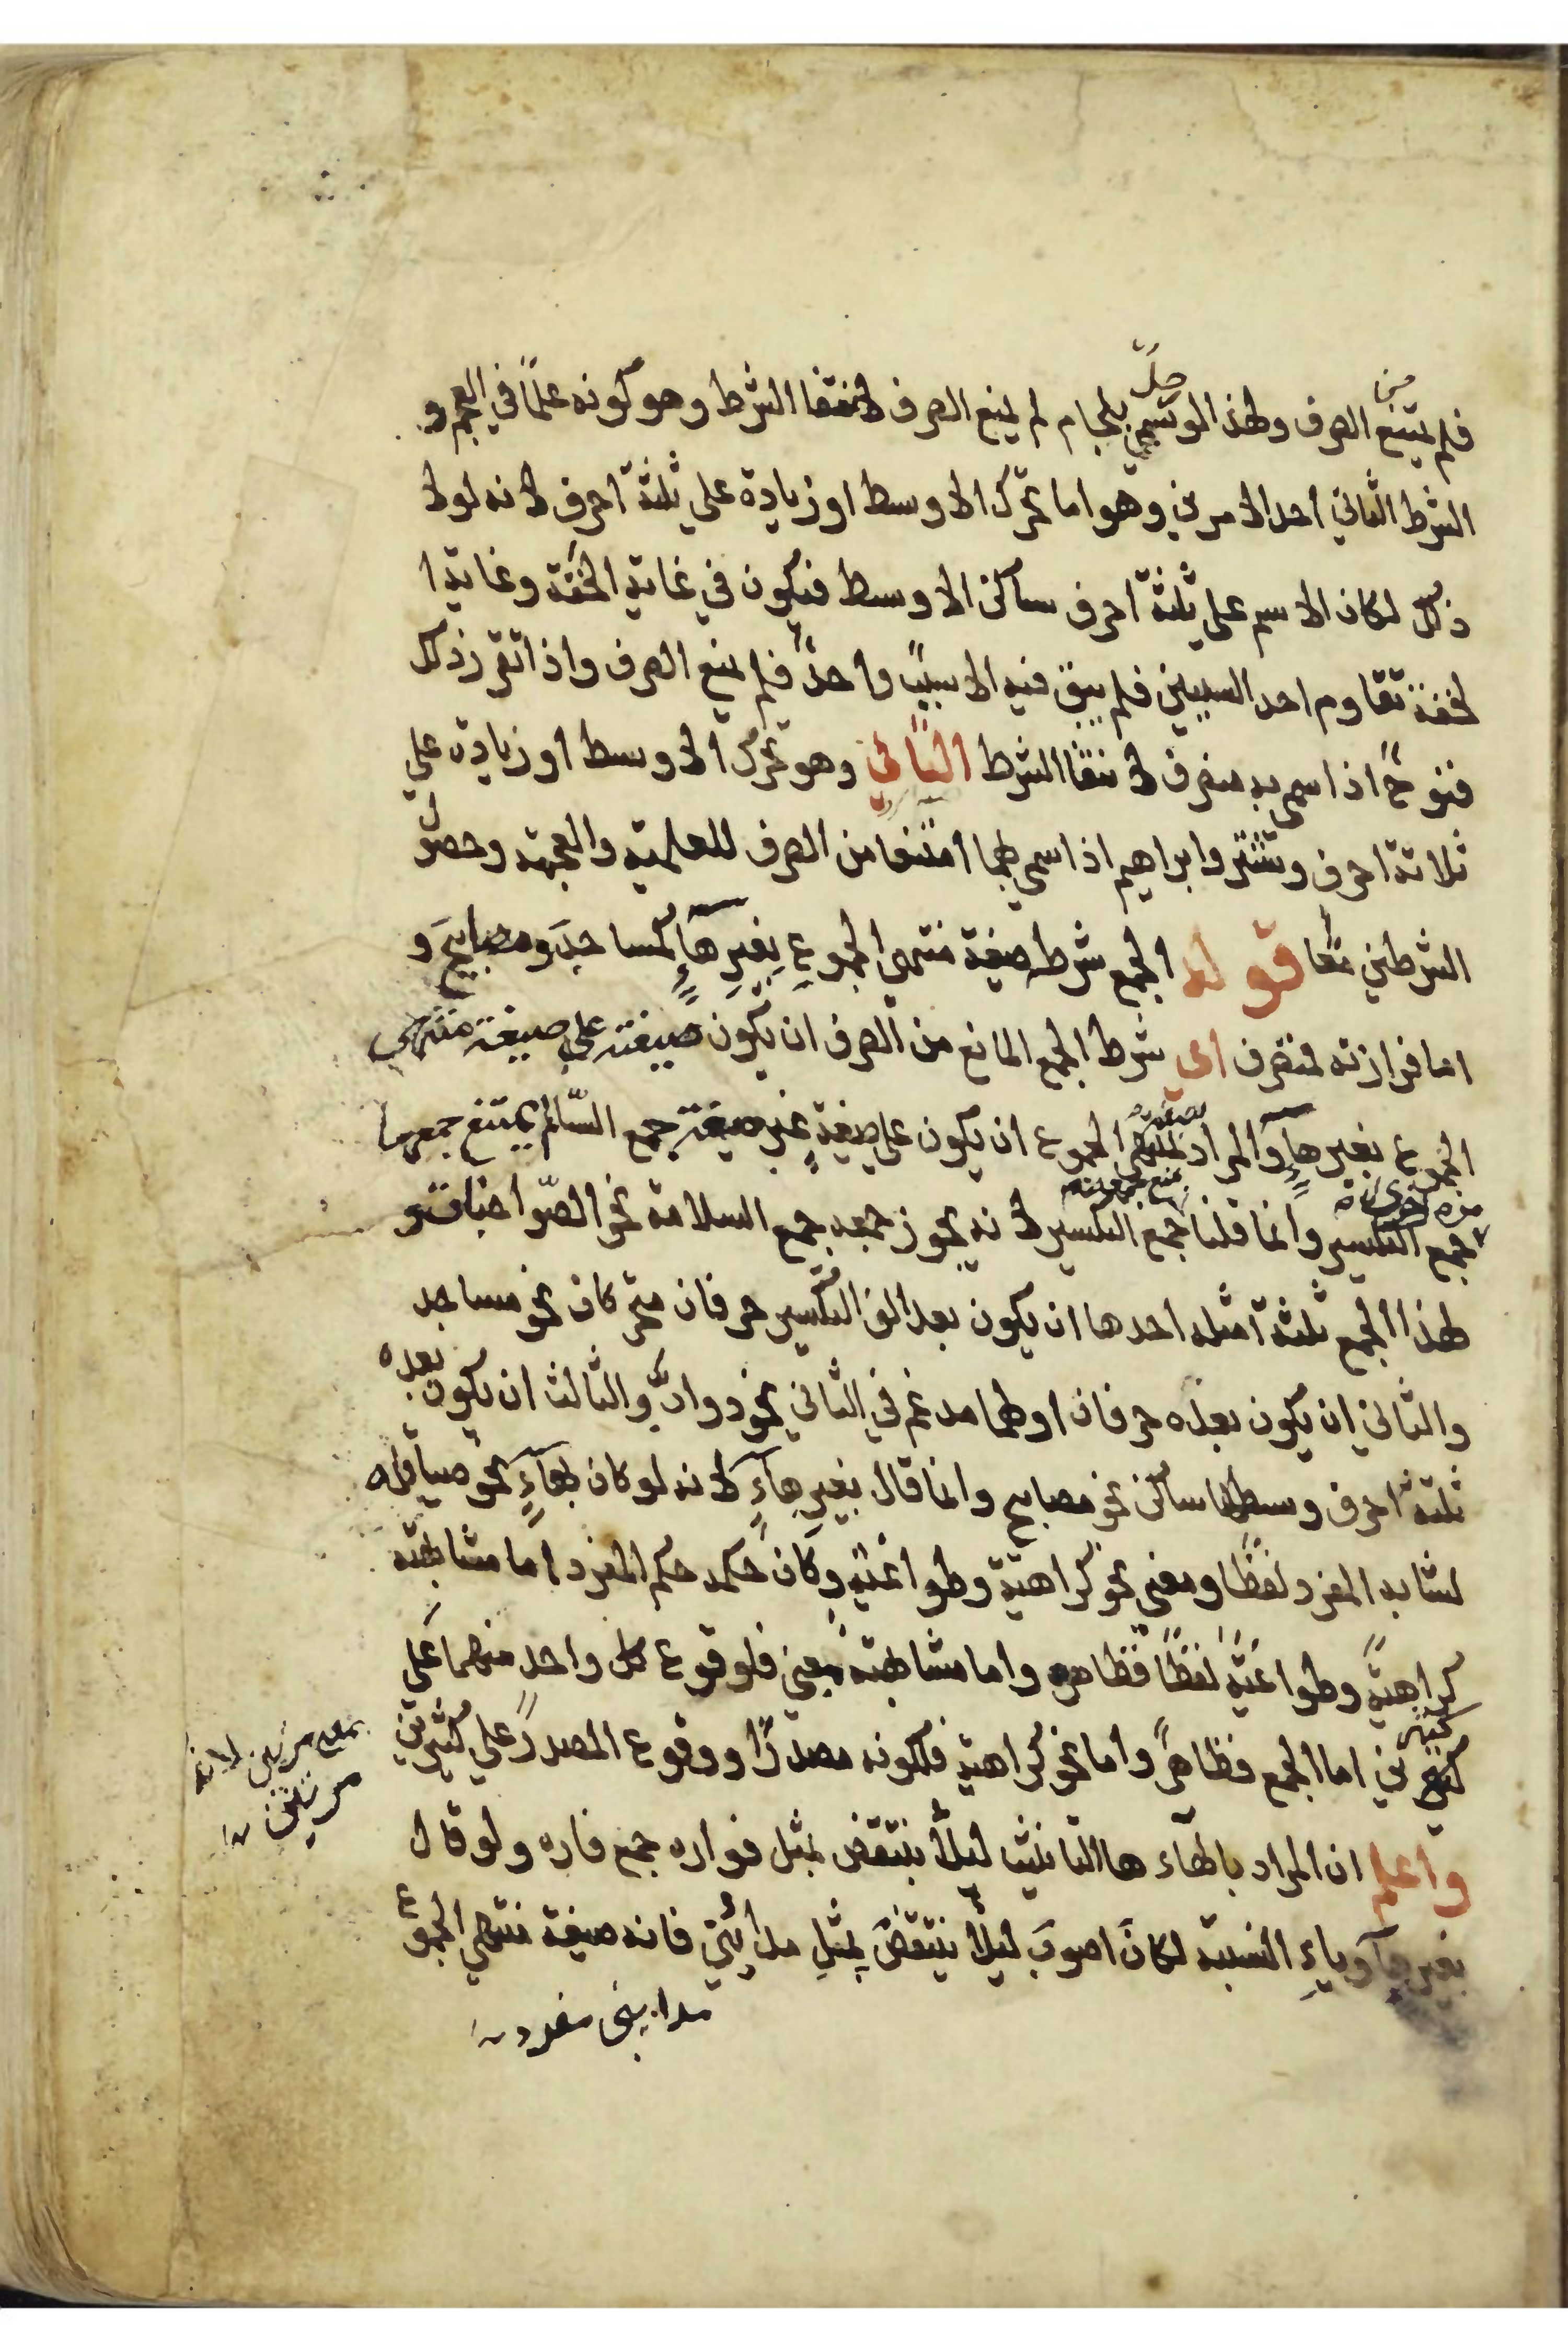 فلم يمتنع من الصرف ولهذا لو سمى رجل بلجام لم يمنع الصرف لانتفا الشرط وهو كونه علمًا في العجم و
الشرط الثاني احد الامرين وهو اما تحرك الاوسط او زيادة على ثلثة احرف لانه لولا
ذلك لكان الاسم على ثلثة احرف ساكن الاوسط فيكون في غاية الخفّة وغاية ا
لخفة تقاوم احد السببين فلم يبق فيه الا سببًا واحدًا فلم يمنع الصرف واذا تقرر ذلك
فنوح اذا سمى به منصرف لانتفا الشرط الثاني وهو تحرك الاوسط او زيادة على
ثلاثة احرف وشتر وابراهيم اذا سمى بهما امتنعا من الصرف للعلمية والعجمة وحصول
الشرطين معًا قوله الجمع شرطه صيغة منتهى الجموع بغير هآءٍ كمساجدَ ومصابيحَ و
اما فرازنة فمنصرف اى شرط الجمع المانع من الصرف ان يكون صيغته على صيغة منتهى
الجموع بغير هآءٍ والمراد بصيغة منتهى الجموع ان يكون على صيغةٍ غير صيغة جمع السّالم يمتنع جمعها
جمع التكسير مرة اخرى وانما قلنا جمع التكسير لانه يجوز جمعه جمع السلامة نحو الصّواحبات و
لهذا الجمع ثلثة امثلة احدها ان يكون بعد الف التكسير حرفان متحركان نحو مساجد
والثاني ان يكون بعده حرفان اولهما مدغم في الثاني نحو دوابّ والثالث ان يكون بعده
ثلثة احرف وسطها ساكن نحو مصابيح وانما قال بغير هآءٍ لانه لو كان بهآءٍ نحو صياقلة
لشابه المفرد لفظًا ومعنى نحو كراهية وطواغية وكان حكمه حكم المفرد اما مشابهة
كراهية وطواغية لفظًا فظاهر واما مشابهته معنى فلوقوع كل واحد منهما على
كثيرين اما الجمع فظاهر واما نحو كراهية فلكونه مصدرًا ووقوع المصدر على كثيرين
واعلم ان المراد بالهآء ها التانيث ليلّا ينتقض بمثل فواره جمع فاره ولو قال
بغير هآ وياءِ النسبة لكانَ اصوبَ ليلّا ينتقضَ بمثلِ مدائنيّ فانه صيغة منتهى الجموع
مدايني مفرد